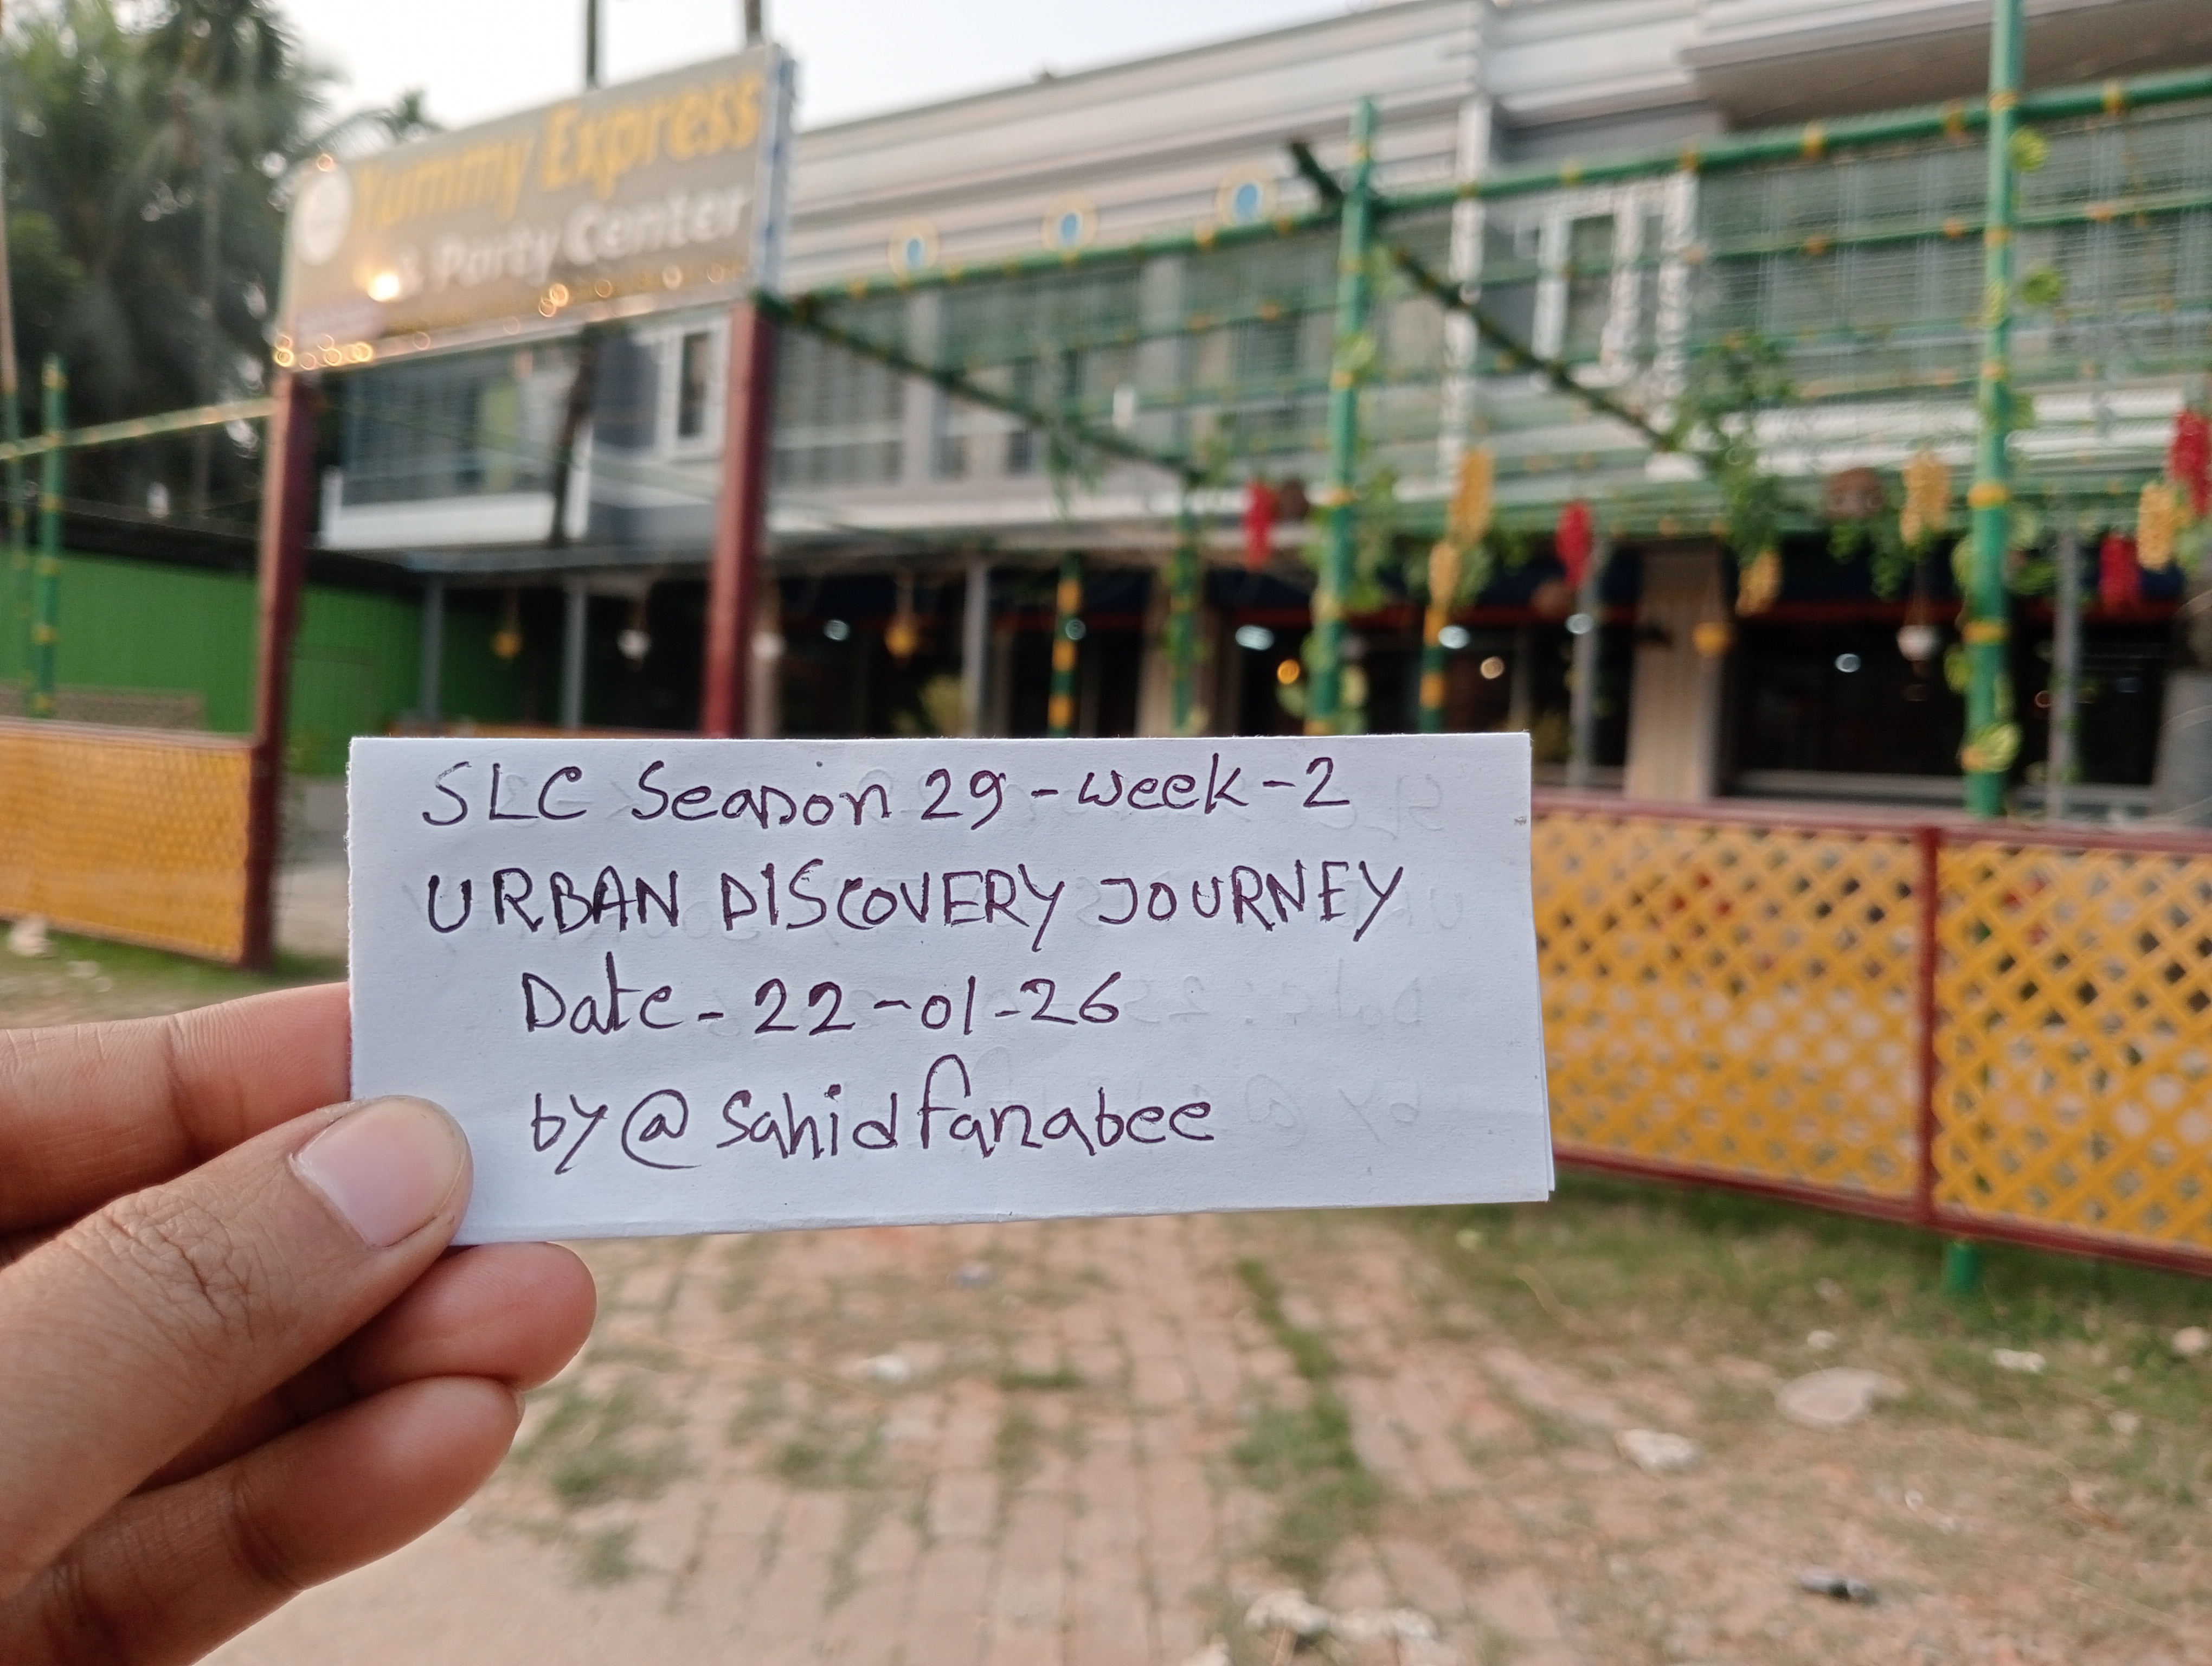 Yummy Express
& Party Center
SLC Season 29-week-2
URBAN DISCOVERY JOURNEY
Date - 22-01-26
by @sahidfanabee